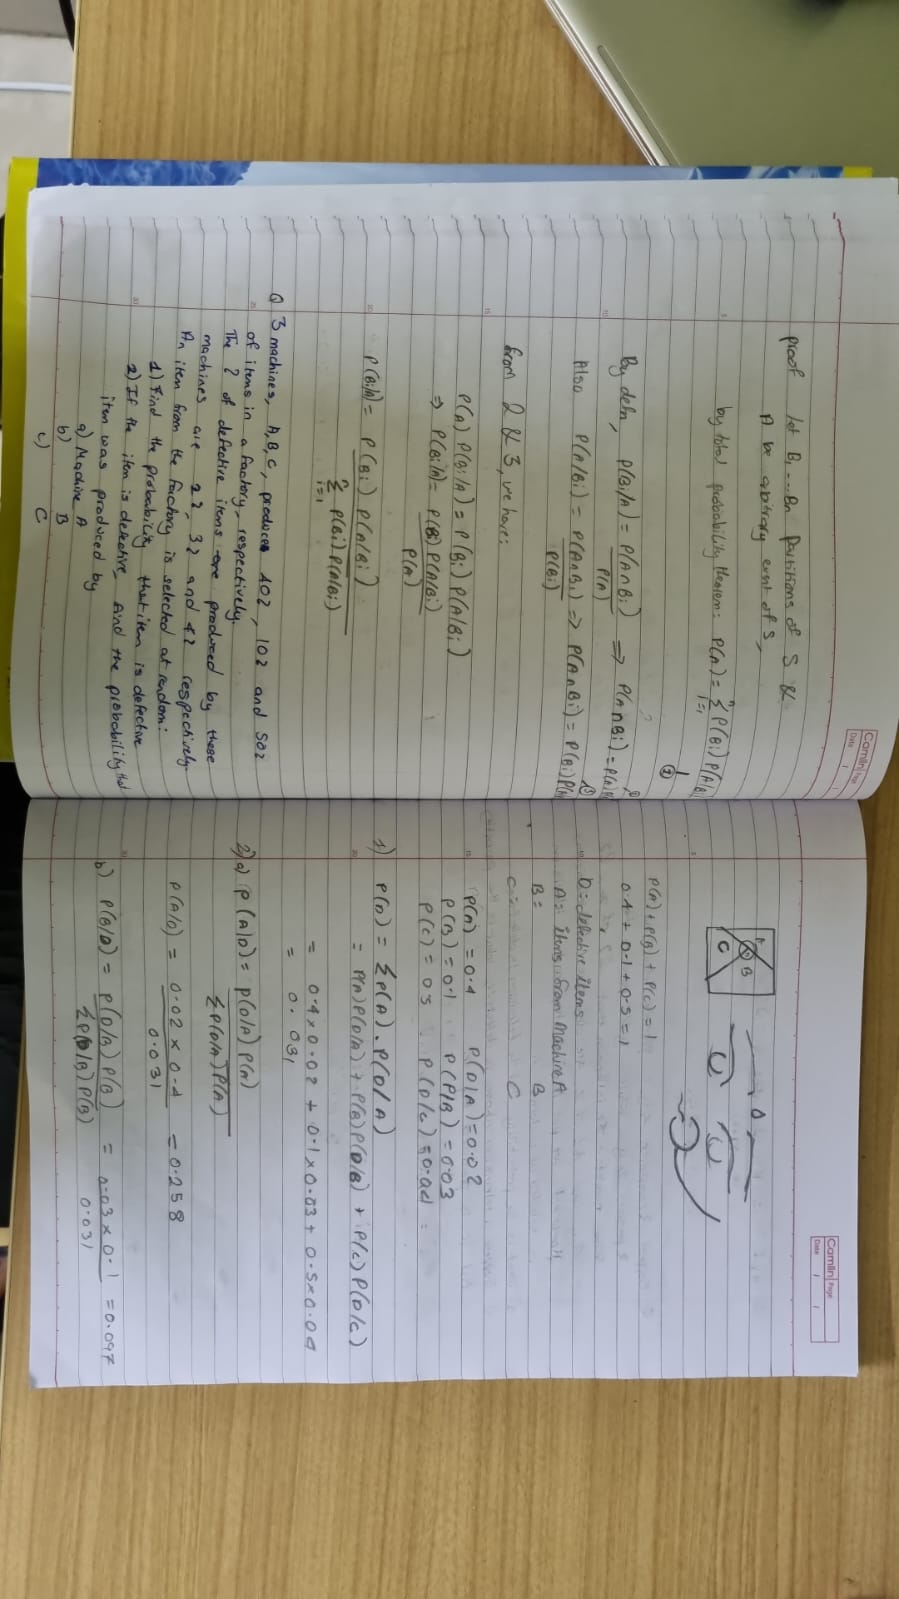 Camlin Page
Date / /
proof let B₁ ... Bn partitions of S &
A be arbitrary event of S,
by total probability theorem: P(A) = n Σ i=1 P(Bi) P(A/Bi)
①
By defn, P(Bi/A) = P(A∩Bi) / P(A) ⇒ P(A∩Bi) = P(A)
Also P(A/Bi) = P(A∩Bi) / P(Bi) ⇒ P(A∩Bi) = P(Bi) P(A/
③
from 2 & 3, we have:
P(A) P(Bi/A) = P(Bi) P(A/Bi)
⇒ P(Bi/A) = P(Bi) P(A/Bi) / P(A)
P(Bi/A) = P(Bi) P(A/Bi) / n Σ i=1 P(Bi) P(A/Bi)
Q 3 machines, A, B, C, produces 40%, 10% and 50%
of items in a factory, respectively.
The % of defective items are produced by these
machines are 2%, 3% and 4% respectively.
An item from the factory is selected at random:
1) Find the probability that item is defective
2) If the item is defective, find the probability that
item was produced by
a) Machine A
b) B
c) C
Camlin Page
Date / /
A
B
C
P(A) + P(B) + P(C) = 1
0.4 + 0.1 + 0.5 = 1
D = defective items
A = items from machine A
B = B
C = C
P(A) = 0.4 P(D/A) = 0.02
P(B) = 0.1 P(P/B) = 0.03
P(C) = 0.5 P(D/C) = 0.04
1) P(D) = Σ P(A) . P(D/A)
= P(A) P(D/A) + P(B) P(D/B) + P(C) P(D/C)
= 0.4 × 0.02 + 0.1 × 0.03 + 0.5 × 0.04
= 0.031
2) a) P(A/D) = P(D/A) P(A) / Σ P(D/A) P(A)
P(A/D) = 0.02 × 0.4 / 0.031 = 0.258
b) P(B/D) = P(D/B) P(B) / Σ P(D/B) P(B) = 0.03 × 0.1 / 0.031 = 0.097